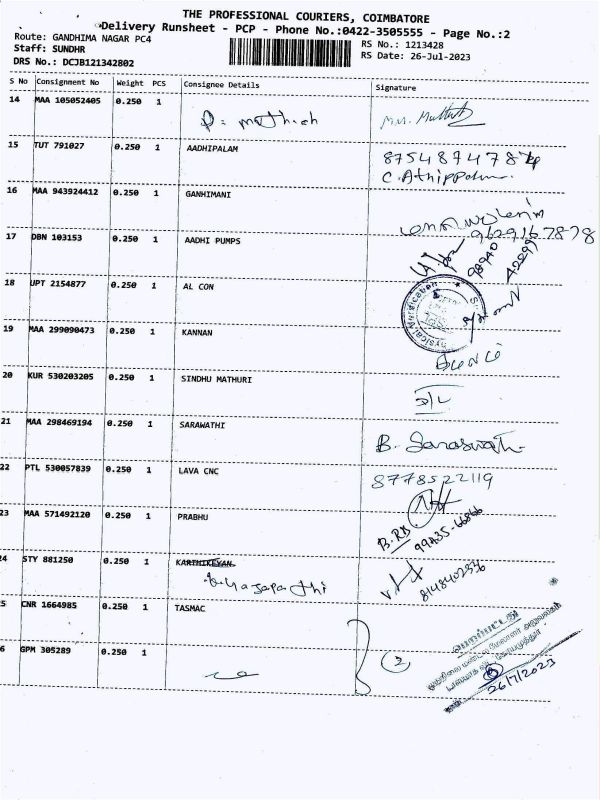 THE PROFESSIONAL COURIERS, COIMBATORE
Delivery Runsheet - PCP - Phone No.:0422-3505555 - Page No.:2
Route: GANDHIMA NAGAR PC4
RS No.: 1213428
Staff: SUNDHR
RS Date: 26-Jul-2023
DRS No.: DCJB121342802
S No Consignment No Weight PCS Consignee Details Signature
14 MAA 105052405 0.250 1
15 TUT 791027 0.250 1 AADHIPALAM
C. Athippalam
16 MAA 943924412 0.250 1 GANHIMANI
9629167878
17 DBN 103153 0.250 1 AADHI PUMPS
18 UPT 2154877 0.250 1 AL CON
19 MAA 299090473 0.250 1 KANNAN
20 KUR 530203205 0.250 1 SINDHU MATHURI
21 MAA 298469194 0.250 1 SARAWATHI
B. Saraswathi
22 PTL 530057839 0.250 1 LAVA CNC 8778522119
23 MAA 571492120 0.250 1 PRABHU
B.RD 99435-66866
24 STY 881250 0.250 1 KARTHIKEYAN
8148402536
5 CNR 1664985 0.250 1 TASMAC
6 GPM 305289 0.250 1
2
26/7/2023